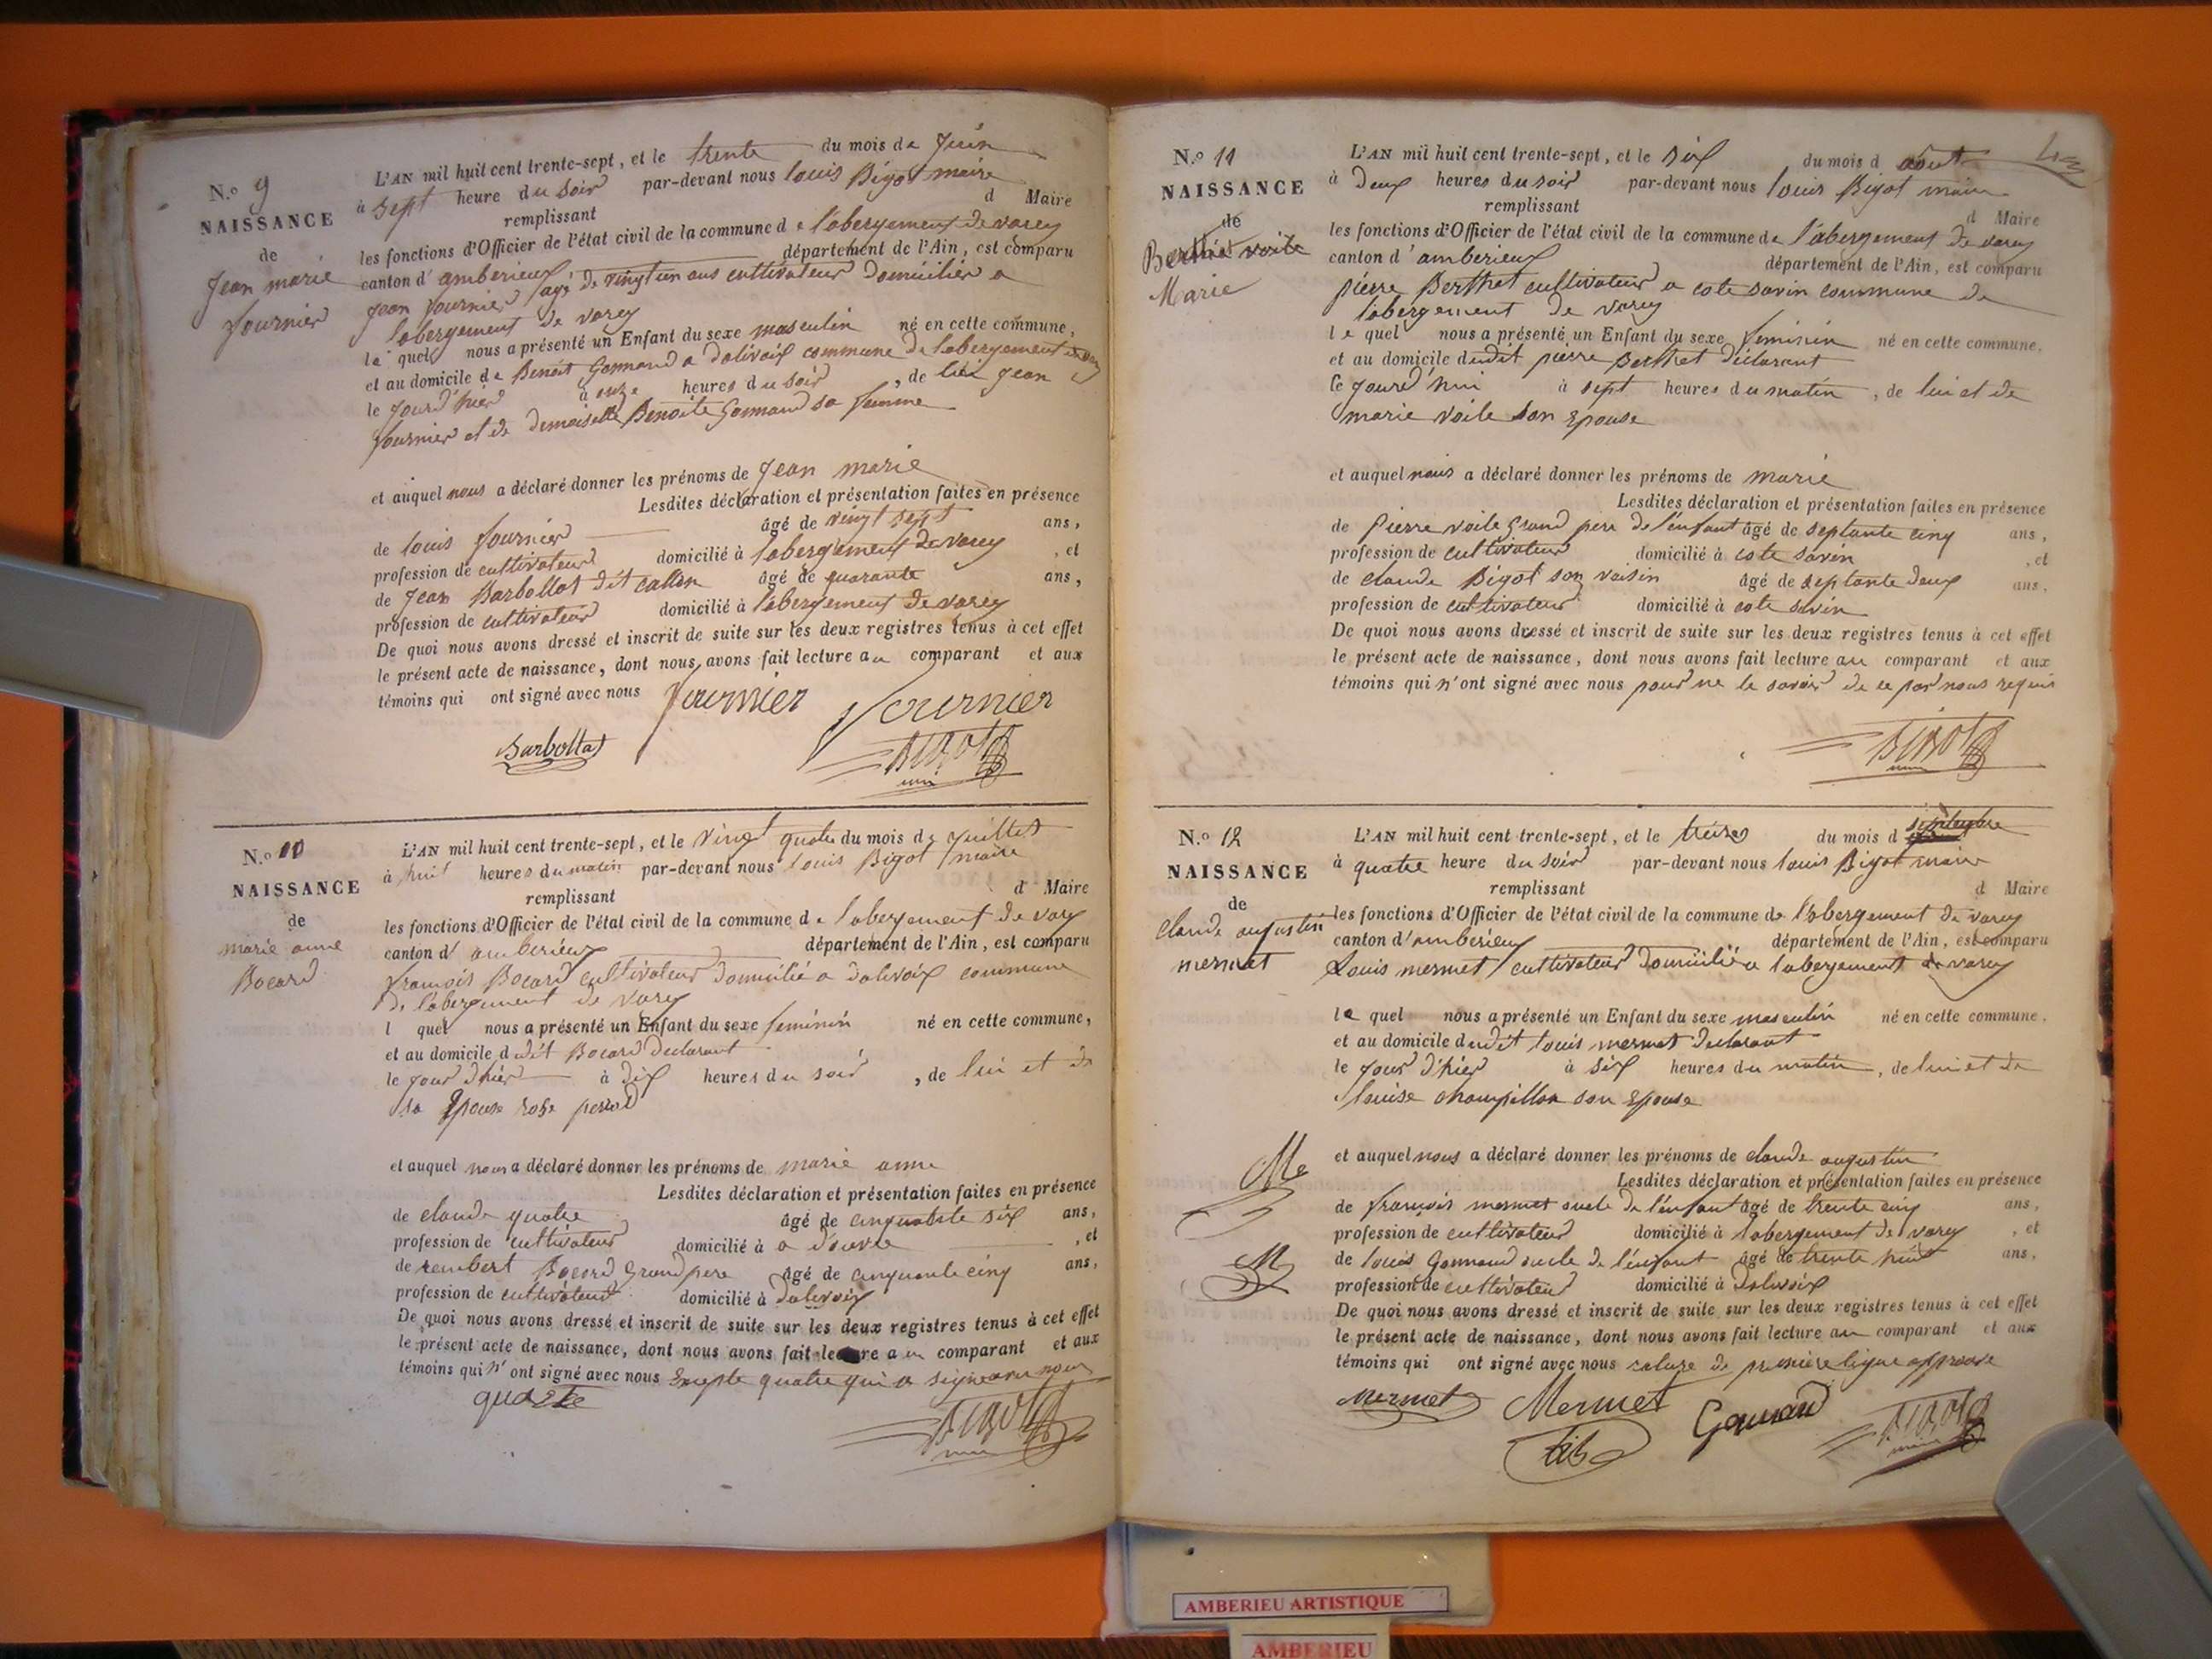 N.o 9
NAISSANCE
de
Jean marie
fournier
L'AN mil huit cent trente-sept, et le trente du mois de Juin
à sept heure du soir par-devant nous louis Bigot maire
d Maire
remplissant
les fonctions d'Officier de l'état civil de la commune de l'abergement de varey
canton d'amberieux département de l'Ain, est comparu
jean fournier agé de vingt un ans cultivateur domicilier a
labergement de varey
le quel nous a présenté un Enfant du sexe masculin né en cette commune,
et au domicile de Benoit Gonnand a dalivoix commune de labergement de varey
le jour d'hier à onze heures du soir, de lui jean
fournier et de demoiselle Benoite Gonnand sa femme
et auquel nous a déclaré donner les prénoms de jean marie
Lesdites déclaration et présentation faites en présence
de louis fournier âgé de vingt sept ans,
profession de cultivateur domicilié à labergement de varey, et
de jean Barbollat dit âgé de quarante ans,
profession de cultivateur domicilié à l'abergement de varey
De quoi nous avons dressé et inscrit de suite sur les deux registres tenus à cet effet
le présent acte de naissance, dont nous avons fait lecture au comparant et aux
témoins qui ont signé avec nous fournier fournier
Barbollat BIGOT
N.o 10
NAISSANCE
de
marie anne
Bocard
L'AN mil huit cent trente-sept, et le vingt quatre du mois de juillet
à huit heures du matin par-devant nous louis Bigot maire
d Maire
remplissant
les fonctions d'Officier de l'état civil de la commune de labergement de varey
canton d'amberieux département de l'Ain, est comparu
françois Bocard cultivateur domicilié a dalivoix commune
de l'abergement de varey
l quel nous a présenté un Enfant du sexe feminin né en cette commune,
et au domicile dudit Bocard declarant
le jour d'hier à dix heures du soir, de lui et de
sa Epouse rose
et auquel nous a déclaré donner les prénoms de marie anne
Lesdites déclaration et présentation faites en présence
de claude quatre âgé de cinquante six ans,
profession de cultivateur domicilié à a douvre, et
de rembert Bocard Grand pere âgé de cinquante cinq ans,
profession de cultivateur domicilié à dalivoix
De quoi nous avons dressé et inscrit de suite sur les deux registres tenus à cet effet
le présent acte de naissance, dont nous avons fait lecture au comparant et aux
témoins qui n'ont signé avec nous Excepte quatre qui a signé avec nous
quatre BIGOT
N.o 11
NAISSANCE
de
Berthet voite
Marie
L'AN mil huit cent trente-sept, et le six du mois d août
à deux heures du soir par-devant nous louis Bigot maire
remplissant
d Maire
les fonctions d'Officier de l'état civil de la commune de l'abergement de varey
canton d'amberieux département de l'Ain, est comparu
pierre Berthet cultivateur a cote savin commune de
labergement de varey
le quel nous a présenté un Enfant du sexe feminin né en cette commune,
et au domicile dudit pierre Berthet déclarant
le jourd'hui à sept heures du matin, de lui et de
marie voile son Epouse
et auquel nous a déclaré donner les prénoms de marie
Lesdites déclaration et présentation faites en présence
de Pierre voile Grand pere de l'enfant âgé de septante cinq ans,
profession de cultivateur domicilié à cote savin, et
de claude Bigot son voisin âgé de septante deux ans,
profession de cultivateur domicilié à cote savin
De quoi nous avons dressé et inscrit de suite sur les deux registres tenus à cet effet
le présent acte de naissance, dont nous avons fait lecture au comparant et aux
témoins qui n'ont signé avec nous pour ne le savoir de ce par nous requis
BIGOT
N.o 12
NAISSANCE
de
claude augustin
mermet
L'AN mil huit cent trente-sept, et le treize du mois d septembre
à quatre heure du soir par-devant nous louis Bigot maire
remplissant
d Maire
les fonctions d'Officier de l'état civil de la commune de l'abergement de varey
canton d'amberieux département de l'Ain, est comparu
Louis mermet cultivateur domicilié a labergement de varey
le quel nous a présenté un Enfant du sexe masculin né en cette commune,
et au domicile dudit louis mermet declarant
le jour d'hier à six heures du matin, de lui et de
louise champillon son Epouse
et auquel nous a déclaré donner les prénoms de claude augustin
Lesdites déclaration et présentation faites en présence
de françois mermet oncle de l'enfant âgé de trente cinq ans,
profession de cultivateur domicilié à labergement de varey, et
de louis Gonnand oncle de l'enfant âgé de trente huit ans,
profession de cultivateur domicilié à dalivoix
De quoi nous avons dressé et inscrit de suite sur les deux registres tenus à cet effet
le présent acte de naissance, dont nous avons fait lecture au comparant et aux
témoins qui ont signé avec nous rature de premiere ligne approuve
mermet Mermet Gonnand BIGOT
AMBERIEU ARTISTIQUE
AMBERIEU